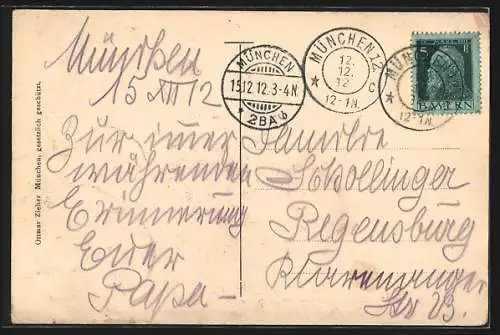 München
15 XII 12
Zur immer
währenden
Erinnerung
Euer
Papa
Familie
Schollinger
Regensburg
Klarenanger
Str 23.
MÜNCHEN
15.12.12.3-4N.
* 2BA b
MÜNCHEN 12
12.
12.
12
* C
12-1N.
MÜN
12-1N.
5
BAYERN
Ottmar Zieher München, gesetzlich geschützt.